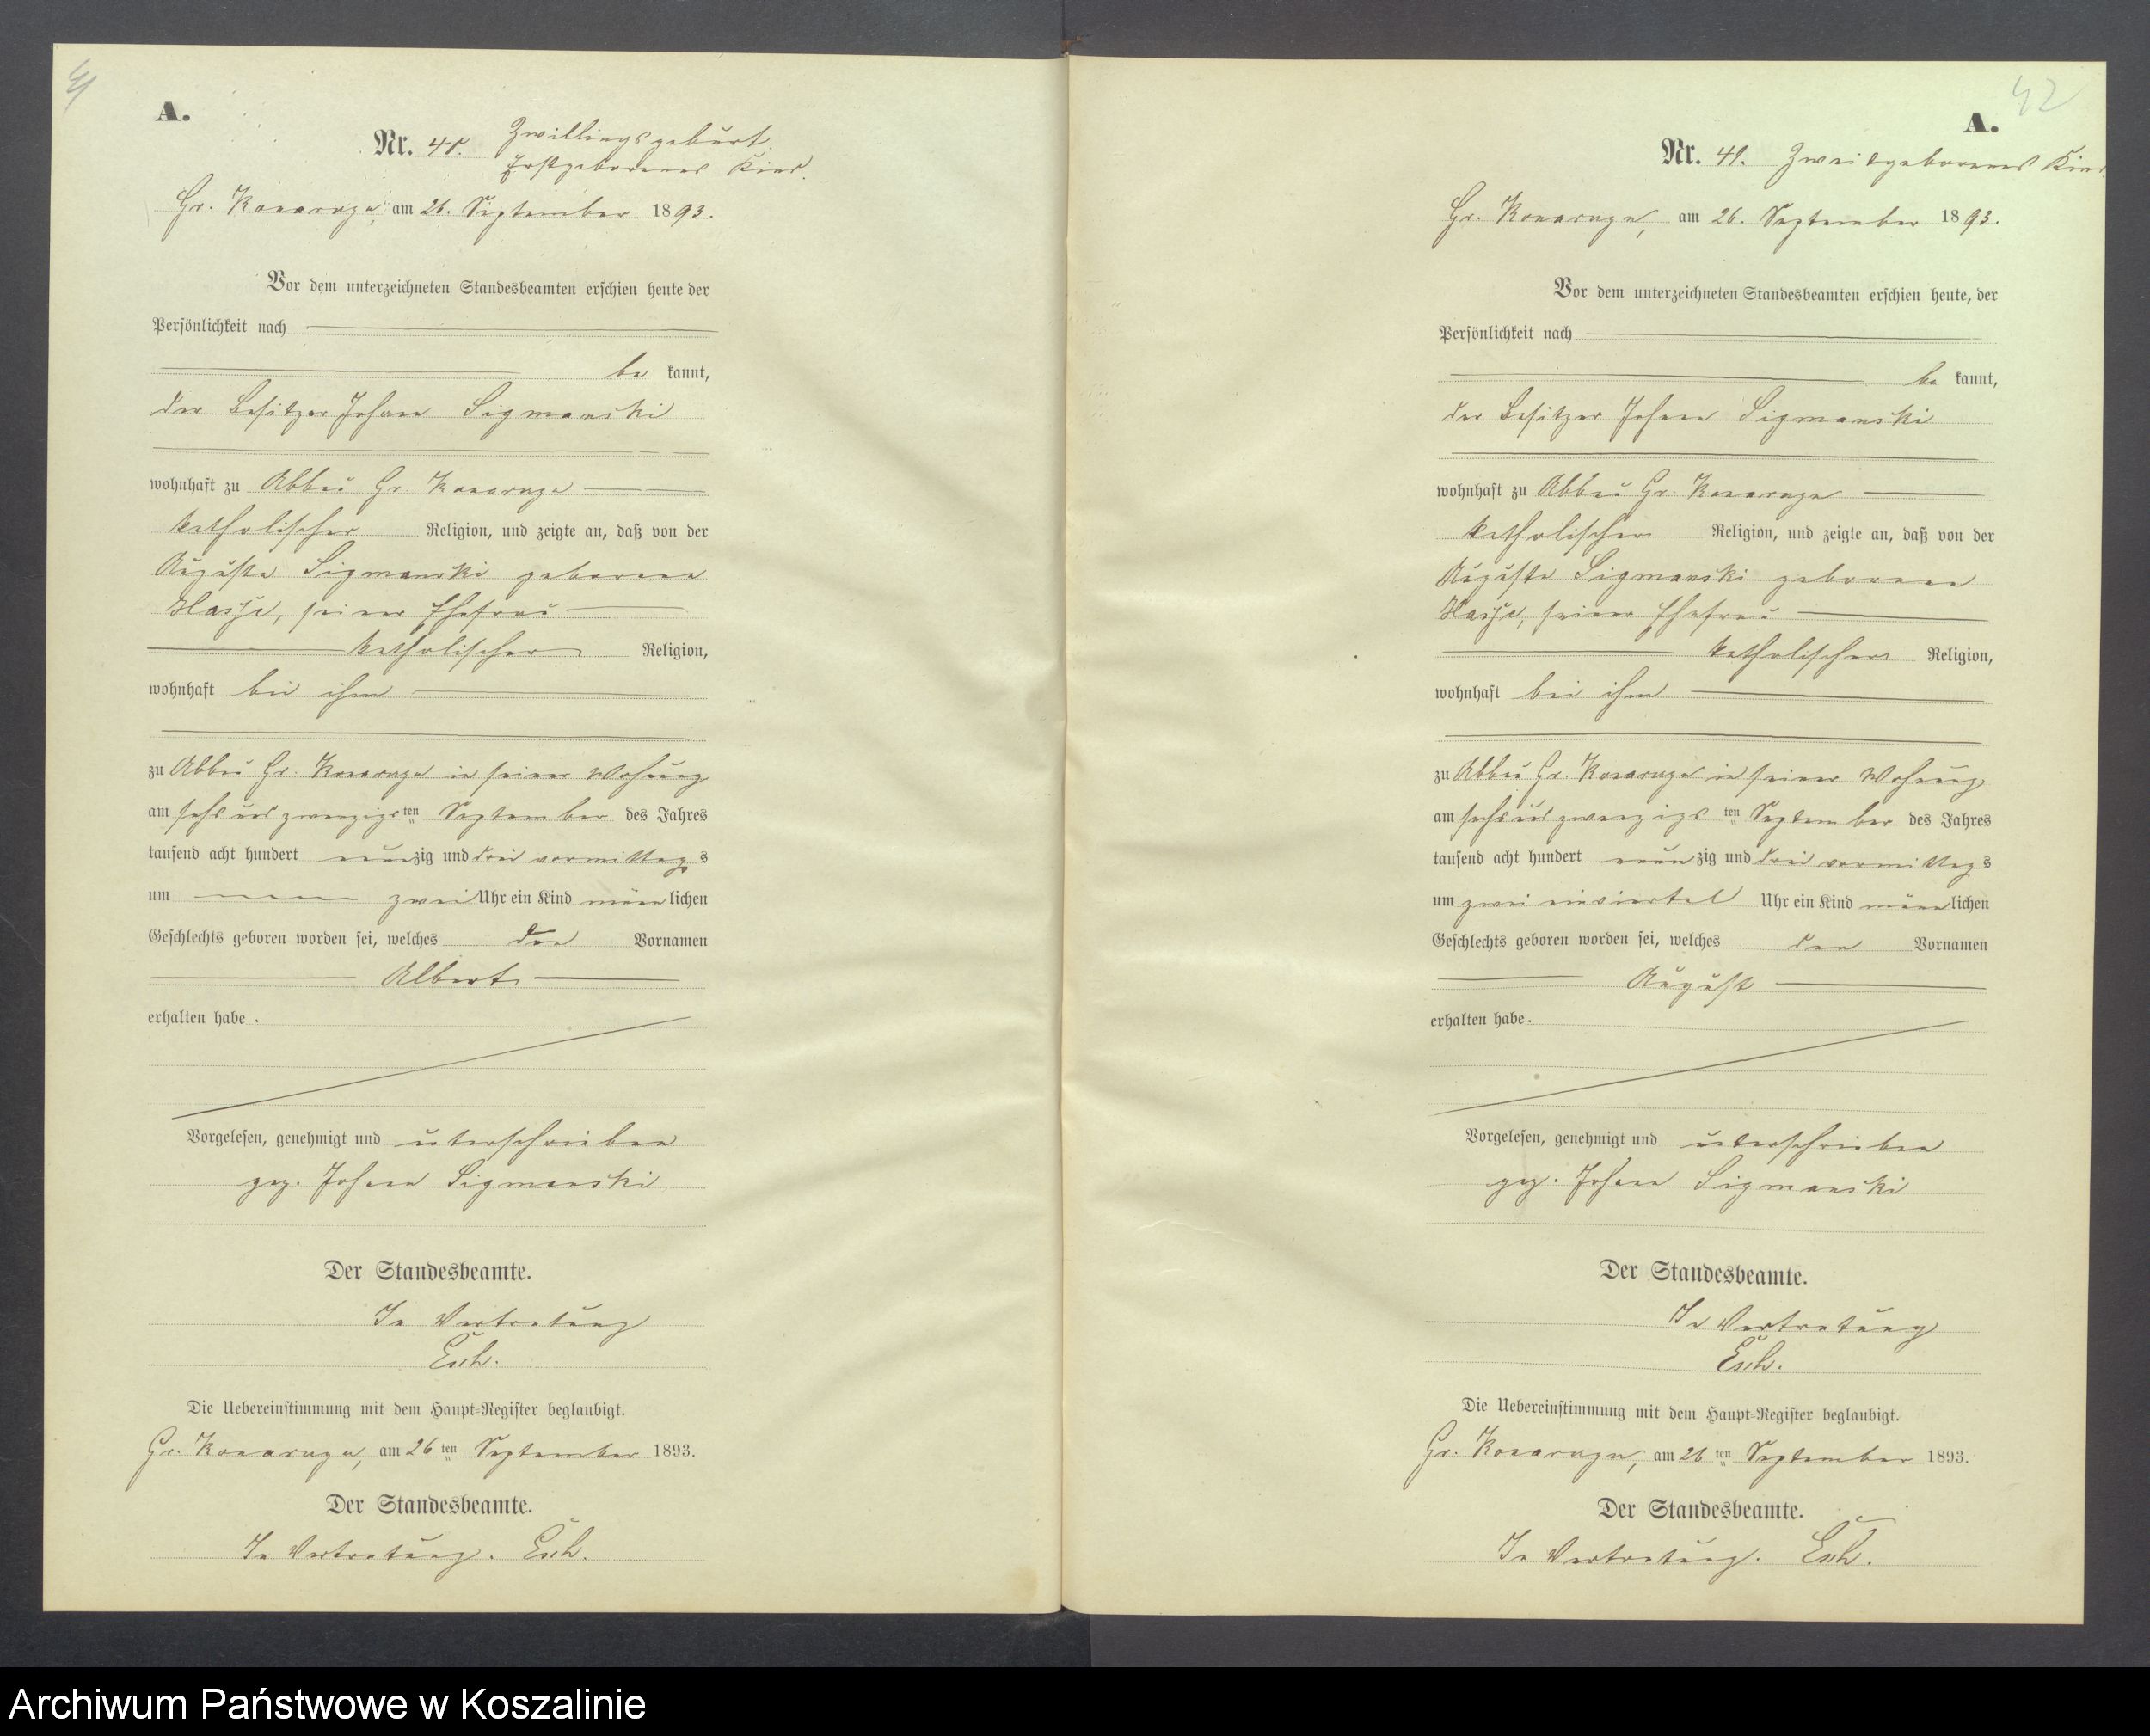 41
A.
Nr. 41. Zwillingsgeburt.
Erstgeborenes Kind.
Gr. Konarczyn, am 26. September 1893.
Vor dem unterzeichneten Standesbeamten erschien heute der
Persönlichkeit nach
be kannt,
der Besitzer Johann Sigmanski
wohnhaft zu Abbau Gr. Konarczyn
katholischer Religion, und zeigte an, daß von der
Auguste Sigmanski geborene
Hasse, seiner Ehefrau
katholischer Religion,
wohnhaft bei ihm
zu Abbau Gr. Konarczyn in seiner Wohnung
am sechsundzwanzigs ten September des Jahres
tausend acht hundert neunzig und drei vormittags
um zwei Uhr ein Kind männlichen
Geschlechts geboren worden sei, welches den Vornamen
Albert
erhalten habe.
Vorgelesen, genehmigt und unterschrieben
gez. Johann Sigmanski
Der Standesbeamte.
In Vertretung
Die Uebereinstimmung mit dem Haupt-Register beglaubigt.
Gr. Konarczyn, am 26 ten September 1893.
Der Standesbeamte.
In Vertretung.
42
A.
Nr. 41. Zweitgeborenes Kind.
Gr. Konarczyn, am 26. September 1893.
Vor dem unterzeichneten Standesbeamten erschien heute, der
Persönlichkeit nach
be kannt,
der Besitzer Johann Sigmanski
wohnhaft zu Abbau Gr. Konarczyn
katholischer Religion, und zeigte an, daß von der
Auguste Sigmanski geborene
Hasse, seiner Ehefrau
katholischer Religion,
wohnhaft bei ihm
zu Abbau Gr. Konarczyn in seiner Wohnung
am sechsundzwanzigs ten September des Jahres
tausend acht hundert neunzig und drei vormittags
um zwei einviertel Uhr ein Kind männlichen
Geschlechts geboren worden sei, welches den Vornamen
August
erhalten habe.
Vorgelesen, genehmigt und unterschrieben
gez. Johann Sigmanski
Der Standesbeamte.
In Vertretung
Die Uebereinstimmung mit dem Haupt-Register beglaubigt.
Gr. Konarczyn, am 26 ten September 1893.
Der Standesbeamte.
In Vertretung.
Archiwum Państwowe w Koszalinie